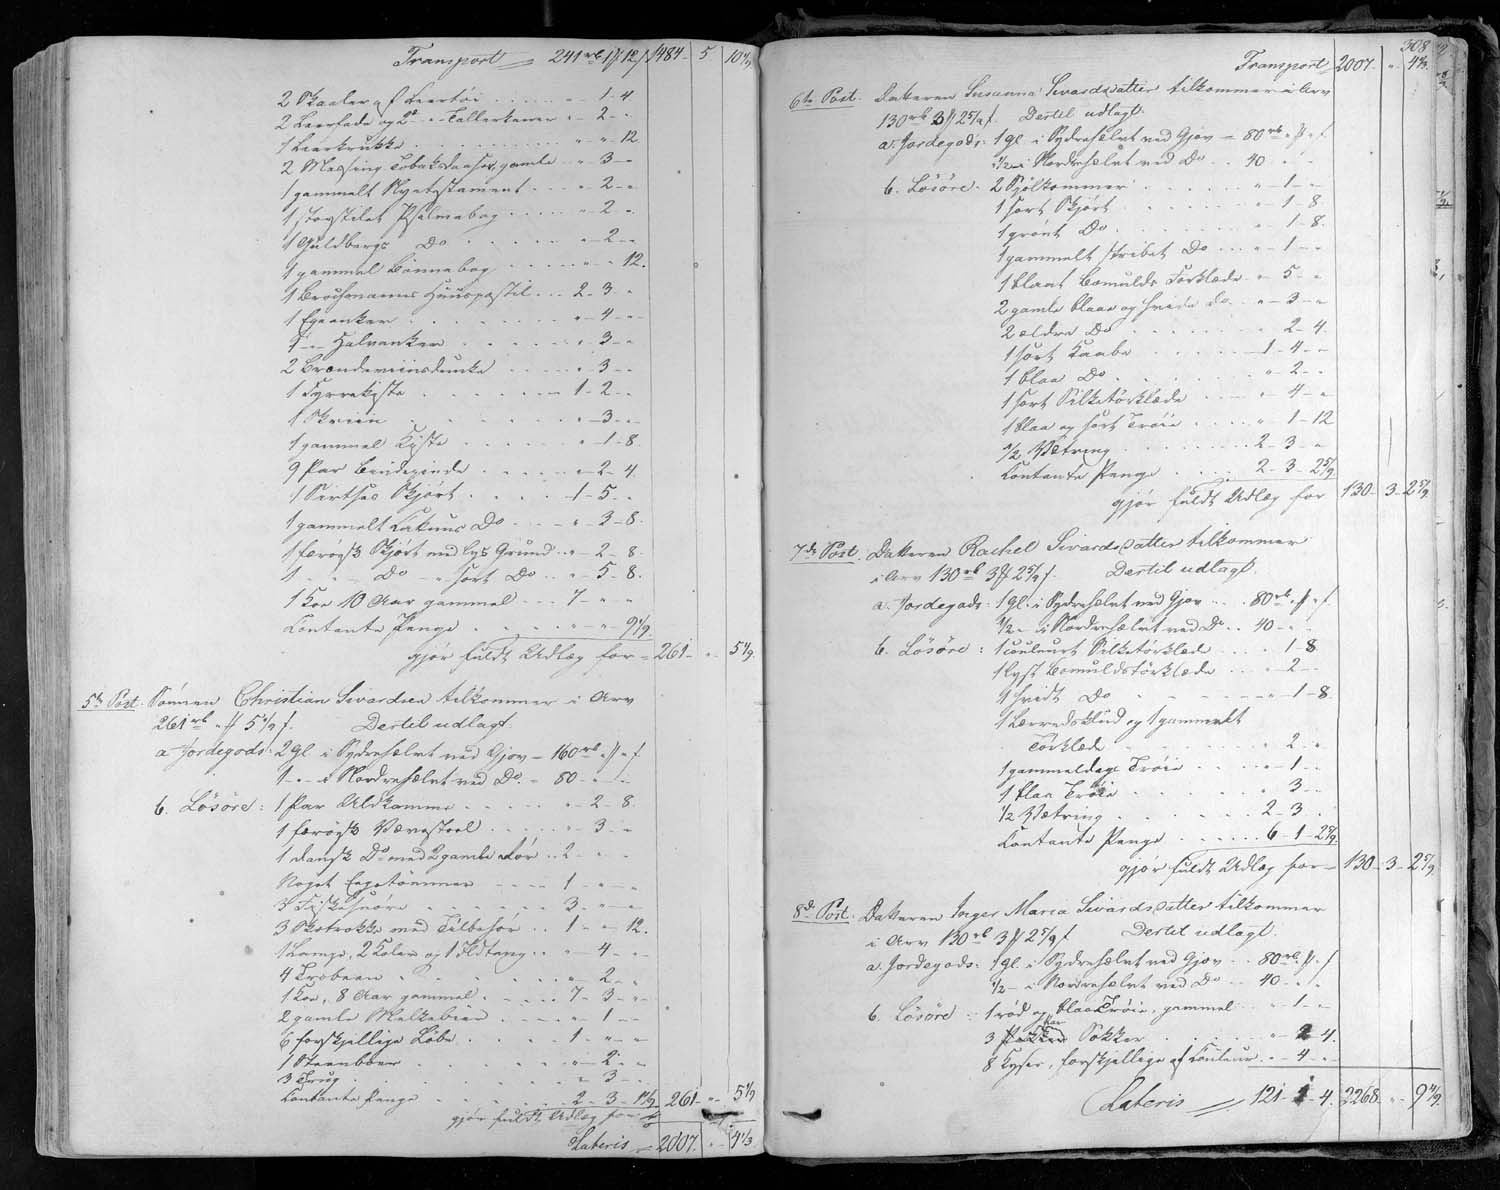 Transport 241 rb 1 ß 12 1484 - 5 10 4/9
2 Skaaler af Leertöi - 1 - 4
2 Leerfade og 2 Do Tallerkener " - 2 - "
1 Leerkrukke " - " 12
2 Messing Tobaksdaaser, gamle " - 3 - "
1 gammelt Nyetestament " - 2 - "
1 storstilet Psalmebog " - 2 - "
1 Guldbergs Do " - 2 - "
1 gammel Bönnebog " - " 12.
1 Brochmanns Huuspostil 2 - 3 - "
1 Egeanker " - 4 - "
1 - " - Halvanker " - 3 - "
2 Brændeviinsdunke " - 3 - "
1 Fyrrekiste 1 - 2 - "
1 Skriin " - 3 - "
1 gammel Kiste " - 1 - 8.
9 Par Bindepinde " - 2 - 4
1 Sirtses Skjört 1 - 5 - "
1 gammelt Do " - 3 - 8.
1 færøsk Skjört med lys Grund " - 2 - 8.
1 - " - Do - " - sort Do " - 5 - 8.
1 Koe 10 Aar gammel 7 - " - "
Contante Penge " - " - 9 4/9.
gjör fuldt Udlæg for 261 - " - 5 4/9.
5te Post. Sönnen Christian Sivardsen tilkommer i Arv
261 rb " ß 5 4/9 f. Dertil udlagt.
a. Jordegods: 2 gl. i Sydrehælvt ved Gjov - 160 rb " ß " f
1 - " - i Nordrehælvt ved Do. - 80 - " - "
b. Lösöre: 1 Par Uldkamme " - 2 - 8.
1 færøsk Vævestoel " - 3 - "
1 dansk Do med 2 gamle Rör 2 - " - "
Noget Egetömmer 1 - " - "
3 Fiskesnöre 3 - " - "
3 Skotrokke med Tilbehör 1 - " - 12.
1 Lampe, 2 Koler og 1 Ildtang " - 4 - "
4 Tröbeen " - 2 - "
1 Koe, 8 Aar gammel 7 - 3 - "
2 gamle Melkebier " - 1 - "
6 forskjellige Löbe 1 - " - "
1 Steenboer " - 2 - "
3 Trug " - 3 - "
Contante Penge 2 - 3 - 261 - " - 5 4/9
gjör fuldt Udlæg for
Lateris 2007. " - 4 1/3
308
Transport 2007. " 4 1/3.
6te Post. Datteren Susanna Sivardsdatter tilkommer i Arv
130 rb 3 ß 2 5/9 f. Dertil udlagt.
a. Jordegods: 1 gl. i Sydrehælvt ved Gjov - 80 rb " ß " f
1/2 - i Nordrehælvt ved Do 40 " "
b. Lösöre: 2 " - 1 - "
1 sort Skjört " - 1 - 8
1 grönt Do " 1 - 8.
1 gammelt stribet Do " - 1 - "
1 blaat Bomulds Forklæde " - 5 - "
2 gamle blaae og hvide Do " - 3 - "
2 ældre Do " 2 - 4.
1 sort Kaabe 1 - 4 - "
1 blaa Do " - 2 - "
1 sort Silketörklæde " - 4 - "
1 blaa og sort Tröie " - 1 - 12
1/2 Vætring 2 - 3 - "
Contante Penge 2 - 3 - 2 5/9.
gjör fuldt Udlæg for 130 - 3 - 2 5/9.
7de Post. Datteren Rachel Sivardsdatter tilkommer
i Arv 130 rb 3 ß 2 5/9 f. Dertil udlagt.
a. Jordegods: 1 gl. i Sydrehælvt ved Gjov 80 rb " ß " f
1/2 - i Nordrehælvt ved Do 40 - " - "
b. Lösöre: 1 couleurt Silketörklæde " 1 - 8
1 lyst Bomuldstörklæde " - 2 - "
1 hvidt Do " - 1 - 8
1 Lærredsklud og 1 gammelt
Törklæde " 2 - "
1 gammeldags Tröie " - 1 - "
1 blaa Tröie " 3 - "
1/2 Vætring 2 - 3 "
Contante Penge 6 - 1 - 2 5/9.
gjör fuldt Udlæg for 130 - 3 - 2 5/9
8de Post. Datteren Inger Maria Sivardsdatter tilkommer
i Arv 130 rb 3 ß 2 5/9 f Dertil udlagt.
a. Jordegods: 1 gl. i Sydrehælvt ved Gjov 80 rb " ß " f
1/2 - i Nordrehælvt ved Do 40 - " - "
b. Lösöre: 1 röd og blaa Tröie, gammel " - 1 - "
3 Par Sokker " - 2 4.
8 Kyser, forskjellige af Couleur " - 4 - "
Lateris 121 1 - 4. 2268. " - 9 4/9.